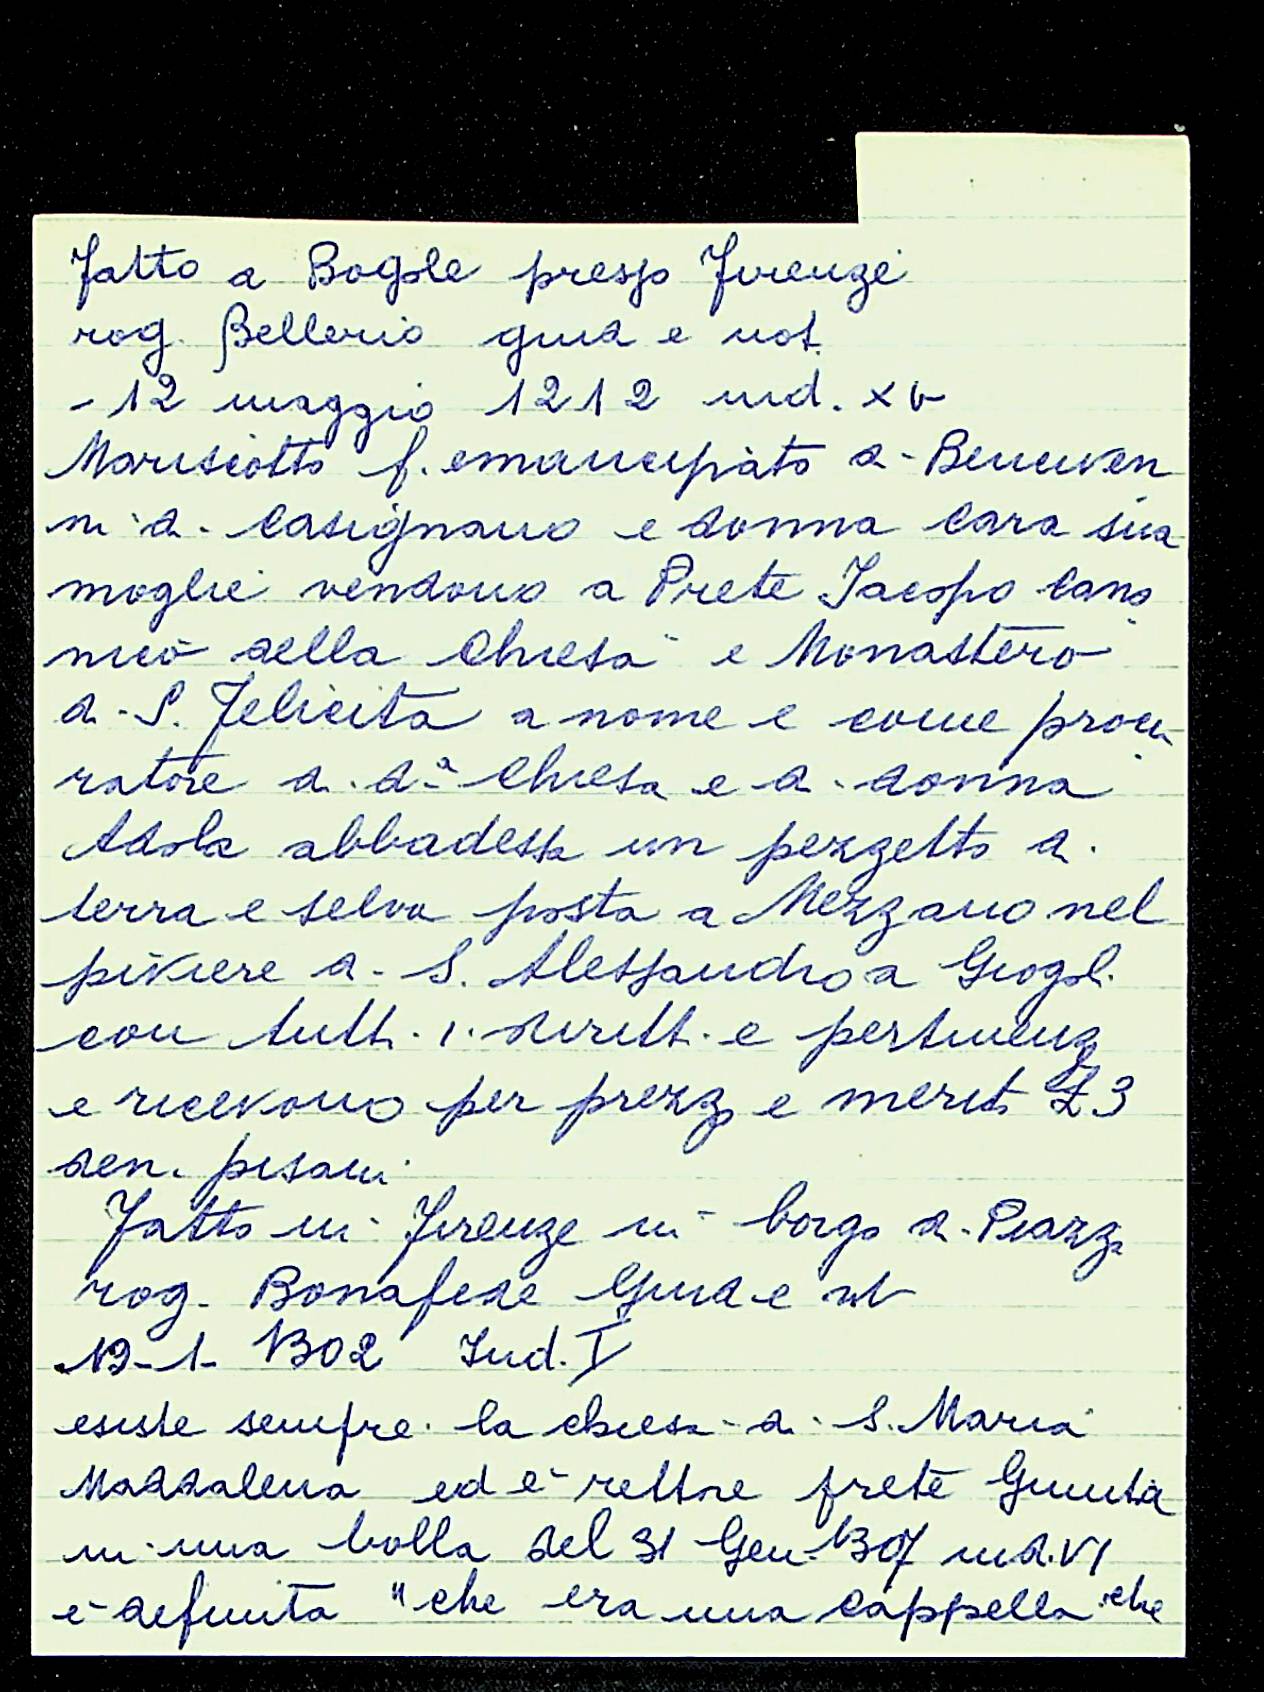 Fatto a Bogole presso Firenze
rog. Bellerio giud e not.
- 12 maggio 1212 ind. XV
Marisciotto f. emancipato di Benuven
ni di Casignano e donna Cara sua
moglie vendono a Prete Jacopo cano
nico della Chiesa e Monastero
di S. Felicita a nome e come procu-
ratore di dª Chiesa e di donna
Adola abbadessa un pezzetto di
terra e selva posta a Mezzano nel
piviere di S. Alessandro a Giogol.
con tutti i diritti e pertinenz
e ricevono per prezzo e merito £ 3
den. pisani
Fatto in Firenze in borgo di Piazza
rog. Bonafede Giud e not
19-1-1302 Ind. I
esiste sempre la chiesa di S. Maria
Maddalena ed è rettore prete Giunta
in una bolla del 31 Gen. 1307 ind. VI
è definita "che era una cappella che